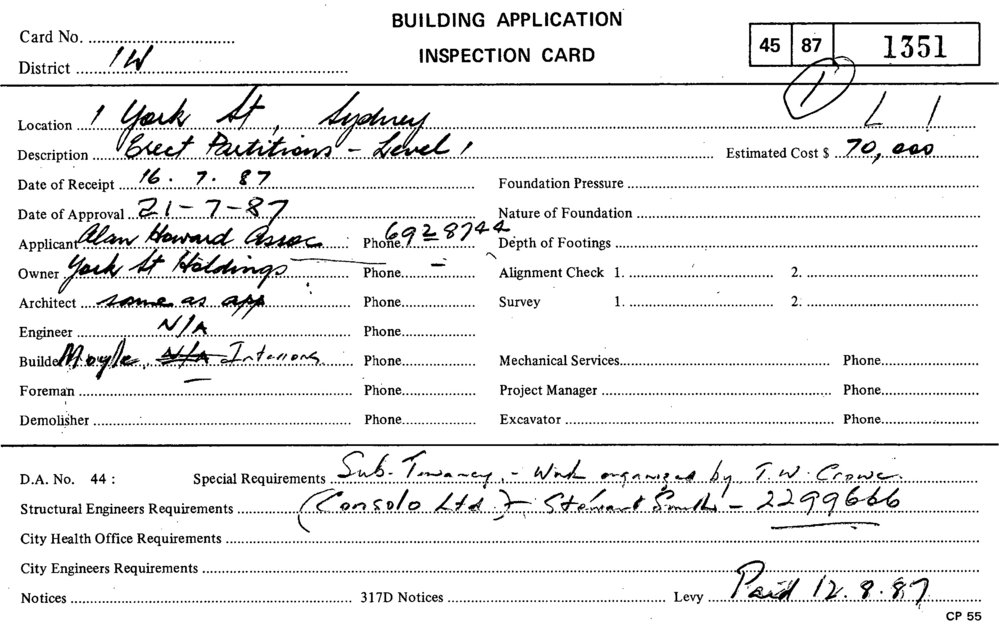 BUILDING APPLICATION
INSPECTION CARD
Card No.
District 1W
45 87 1351
1
L 1
Location 1 York St, Sydney
Description Erect Partitions - Level 1 Estimated Cost $ 70,000
Date of Receipt 16. 7. 87 Foundation Pressure
Date of Approval 21-7-87 Nature of Foundation
Applicant Alan Howard Assoc Phone 6928744 Depth of Footings
Owner York St Holdings Phone Alignment Check 1. 2.
Architect same as app Phone Survey 1. 2.
Engineer N/A Phone
Builder Moyle, N/A Interiors Phone Mechanical Services Phone
Foreman Phone Project Manager Phone
Demolisher Phone Excavator Phone
D.A. No. 44 : Special Requirements Sub-Tenancy - Work organised by T.W. Crowe
Structural Engineers Requirements (Consolo Ltd) - Stewart Smith - 2299666
City Health Office Requirements
City Engineers Requirements
Notices 317D Notices Levy Paid 12.8.87
CP 55